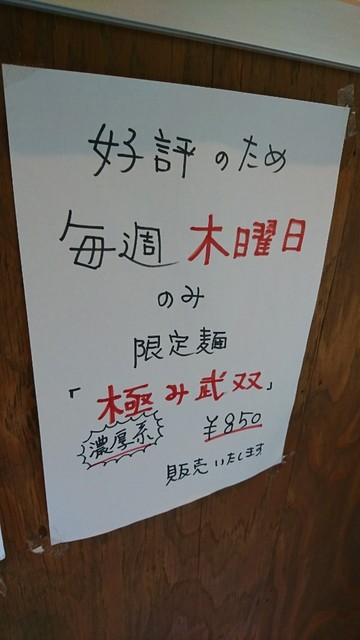 好評のため
毎週 木曜日
のみ
限定麺
「極み武双」
濃厚系
¥850
販売いたします